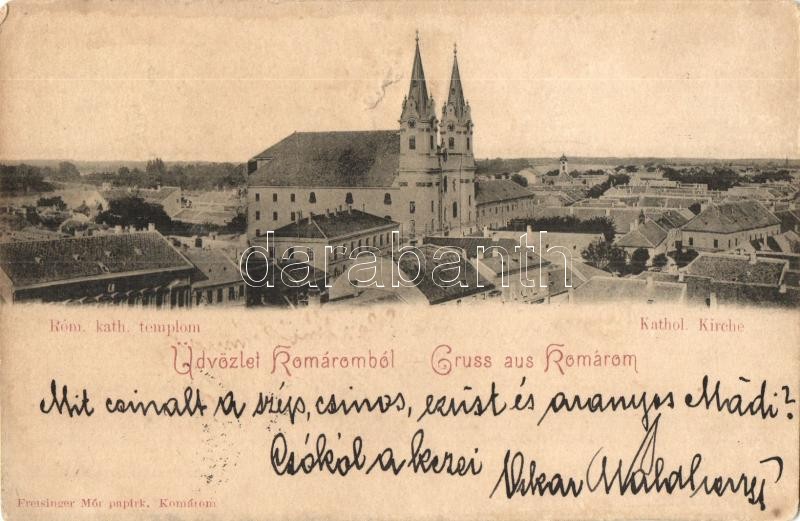 darabanth
Róm. kath. templom
Kathol. Kirche
Üdvözlet Komáromból Gruss aus Komárom
Mit csinalt a szép, csinos, ezüst és aranyos Mádi?
Csókól a kezei Oskar
Freisinger Mór papírk. Komárom